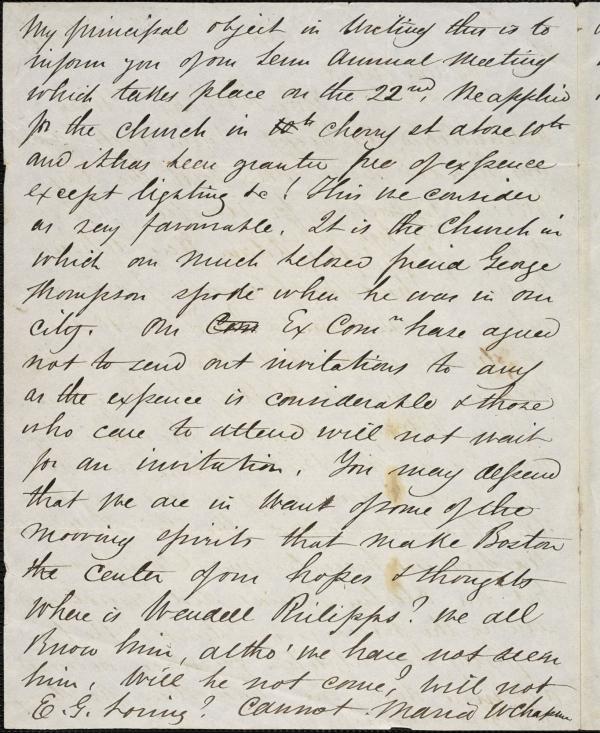 My principal object in writing this is to
inform you of our Semi Annual Meeting
which takes place on the 22nd. We applied
for the church in 10th Cherry st above 10th
and it has been granted free of expence
except lighting &c! This we consider
as very favourable. It is the church in
which our much beloved friend George
Thompson spoke when he was in our
city. Our Com Ex Comn have agreed
not to send out invitations to any
as the expence is considerable & those
who care to attend will not wait
for an invitation. You may depend
that we are in want of some of the
mooving spirits that make Boston
the center of our hopes & thoughts
Where is Wendell Philipps? We all
know him, altho' we have not seen
him, will he not come? will not
E. G. Loring? Cannot Maria W Chapman